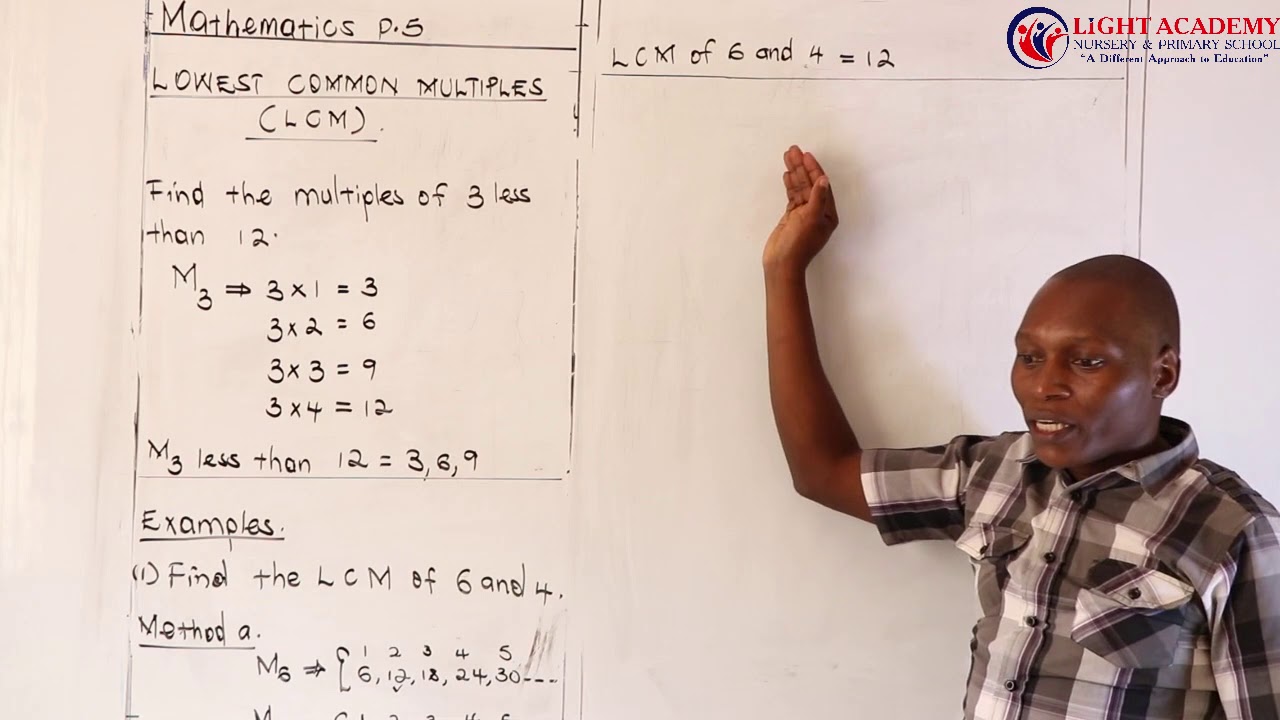 Mathematics P.5
LOWEST COMMON MULTIPLES
(LCM).
Find the multiples of 3 less
than 12.
M3 ⇒ 3 × 1 = 3
3 × 2 = 6
3 × 3 = 9
3 × 4 = 12
M3 less than 12 = 3, 6, 9
Examples.
(1) Find the LCM of 6 and 4.
Method a.
1 2 3 4 5
M6 ⇒ { 6, 12, 18, 24, 30 ----
LCM of 6 and 4 = 12
LIGHT ACADEMY
NURSERY & PRIMARY SCHOOL
"A Different Approach to Education"